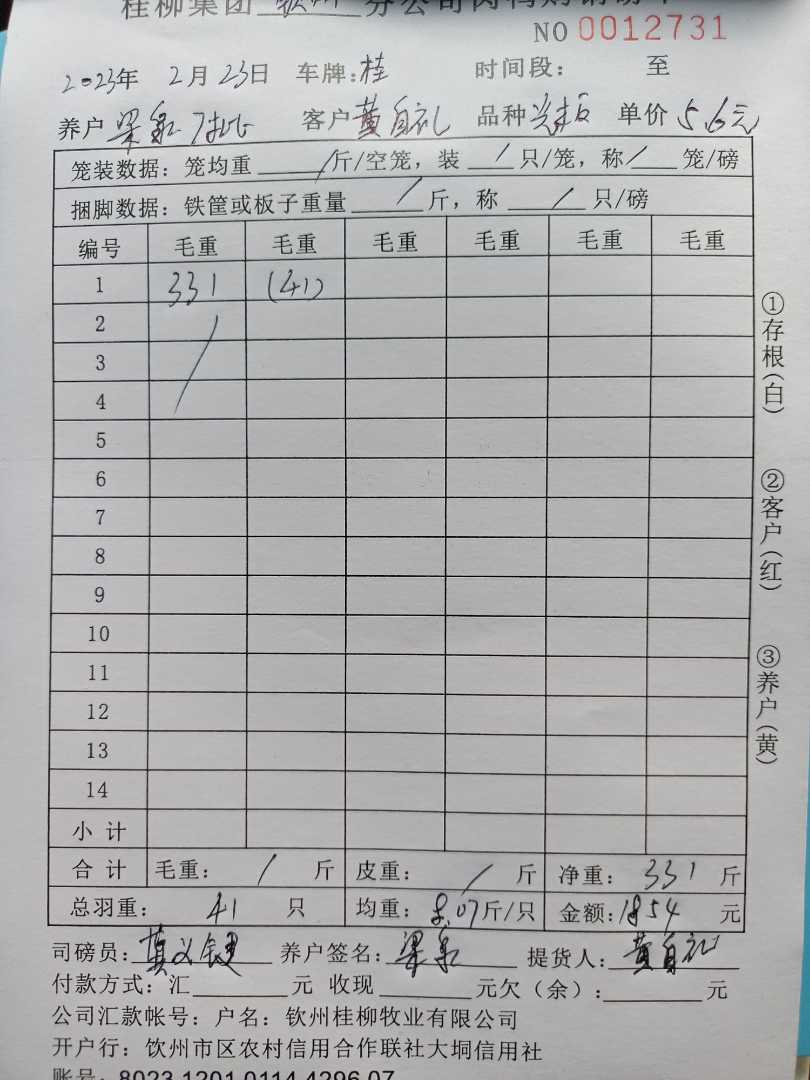 桂柳集团 钦州 分公司肉鸭购销磅单
NO 0012731
2023年 2月 23日 车牌:桂 时间段: 至
养户 梁泉 客户 黄自礼 品种 单价 5.6元
笼装数据: 笼均重 / 斤/空笼, 装 / 只/笼, 称 / 笼/磅
捆脚数据: 铁筐或板子重量 / 斤, 称 / 只/磅
编号 毛重 毛重 毛重 毛重 毛重 毛重
1 331 (41)
2
3
4
5
6
7
8
9
10
11
12
13
14
小计
合计 毛重: / 斤 皮重: / 斤 净重: 331 斤
总羽重: 41 只 均重: 8.07斤/只 金额: 1854 元
司磅员: 养户签名: 梁泉 提货人: 黄自礼
付款方式: 汇 元 收现 元欠(余): 元
公司汇款帐号: 户名: 钦州桂柳牧业有限公司
开户行: 钦州市区农村信用合作联社大垌信用社
账号: 8023 1201 0114 4296 07
①存根(白)
②客户(红)
③养户(黄)